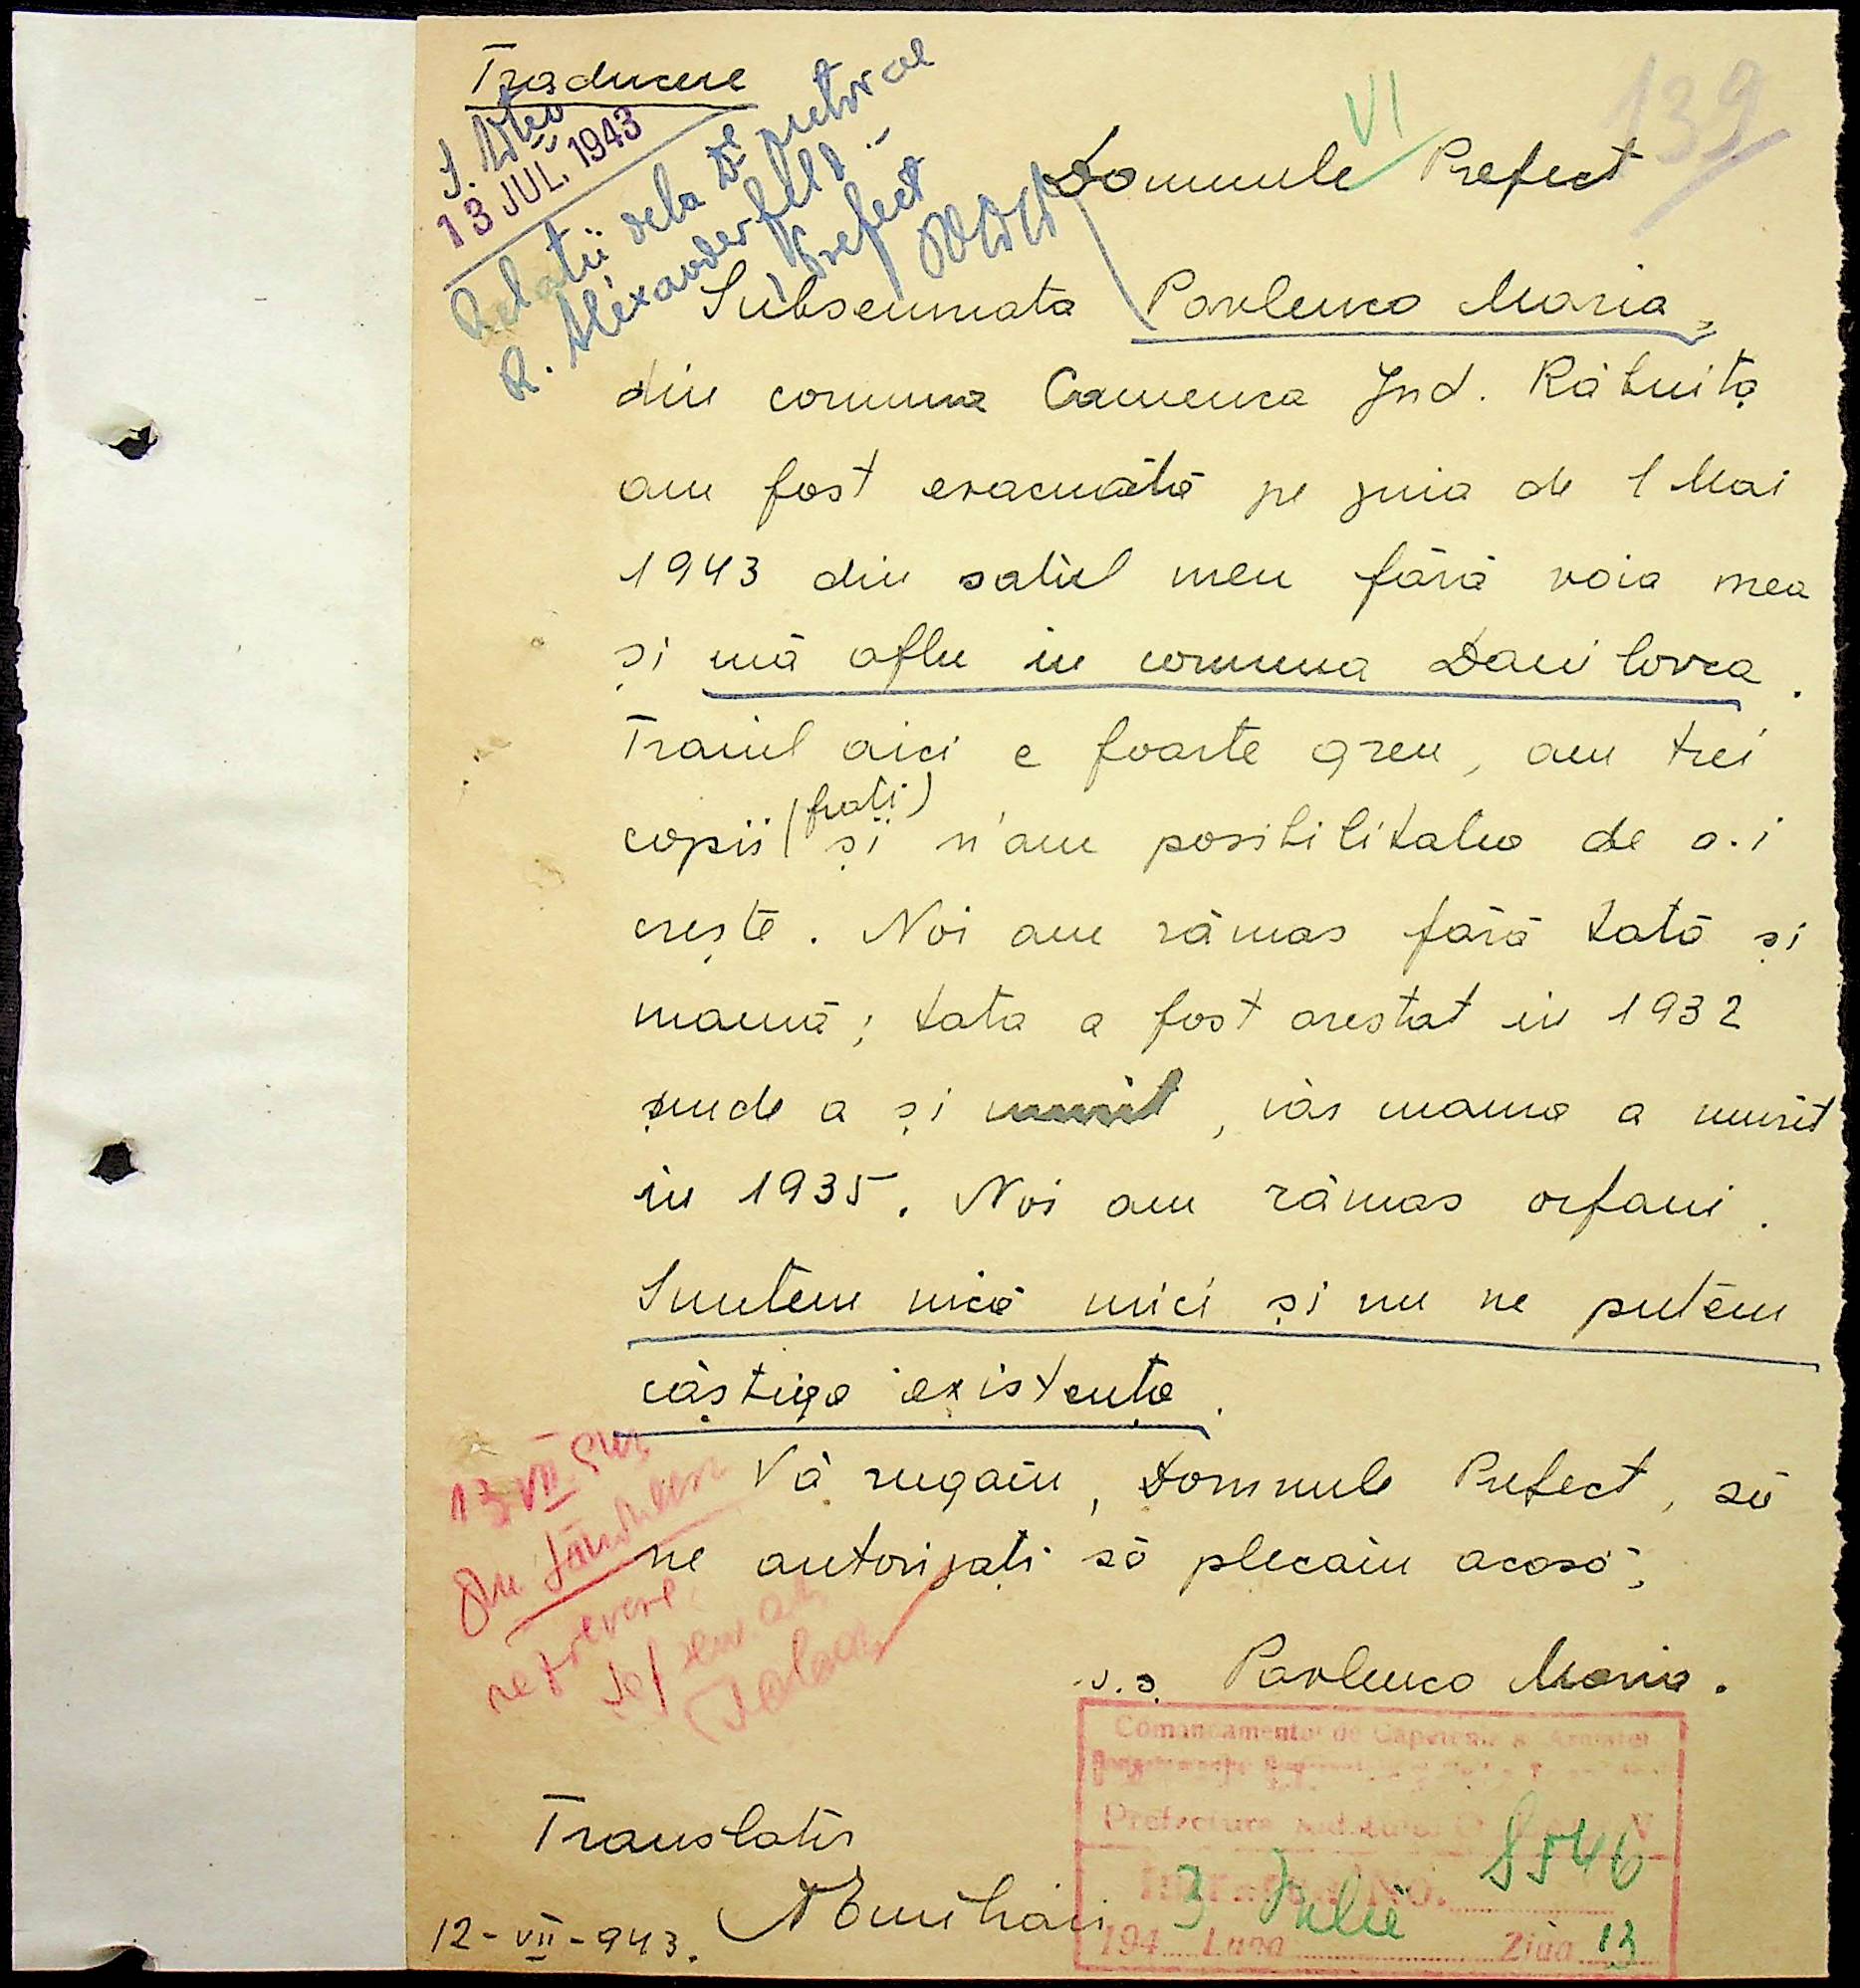 Traducere
13 JUL. 1943
VI
139
Relatii dela Dl pretor al
R. Alexanderfeld.
Prefect
Domnule Prefect
Subsemnata Pavlenco Maria,
din comuna Camenca Jud. Râbnița
am fost evacuată pe ziua de 1 Mai
1943 din satul meu fără voia mea
și mă aflu in comuna Danilovca.
Traiul aici e foarte greu, am trei
copii (frați) și n'am posibilitatea de a-i
crește. Noi am rămas fără tată și
mamă; tata a fost arestat in 1932
unde a și murit, iar mama a murit
in 1935. Noi am rămas orfani.
Suntem incă mici și nu ne putem
câștiga existența.
Vă rugăm, Domnule Prefect, să
ne autorizați să plecăm acasă;
s.s. Pavlenco Maria.
13 VII
Translator
12-VII-943.
Comandamentul de Căpetenie a Armatei
Prefectura Județului
Intrarea No. 8546
194 3 Luna Iulie Ziua 13